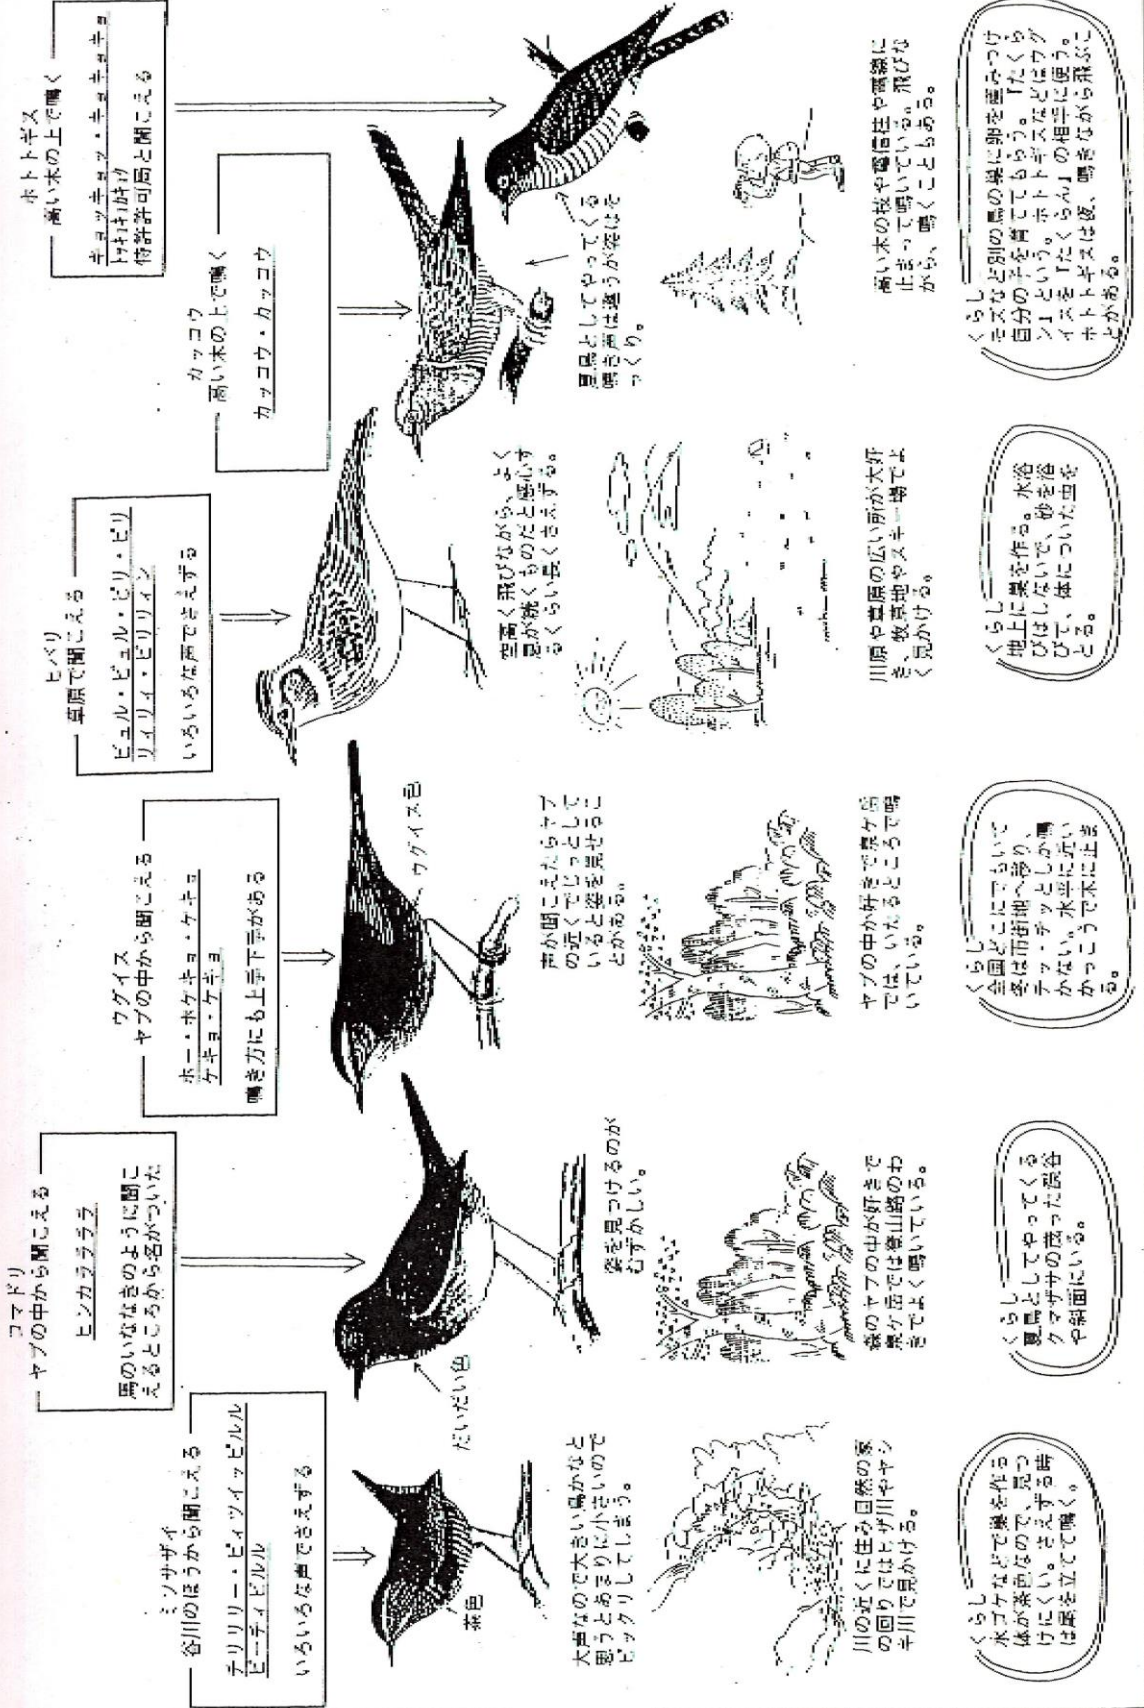 ミソサザイ
谷川のほうから聞こえる
チリリリー・ピィツイッピルル
ピーティピルル
いろいろな声でさえずる
茶色
大声なので大きい鳥かなと
思うとあまりに小さいので
ビックリしてしまう。
川の近くに住み自然の家
の回りではヒザ川やヤシ
キ川で見かける。
くらし
水ゴケなどで巣を作る
体が茶色なので、見つ
けにくい。さえずる時
は尾を立てて鳴く。
コマドリ
ヤブの中から聞こえる
ヒンカラララララ
馬のいななきのように聞こ
えるところから名がついた
だいだい色
姿を見つけるのが
むずかしい。
森のヤブの中が好きで
泉ケ岳では登山路のわ
きでよく鳴いている。
くらし
夏鳥としてやってくる
クマザサの茂った渓谷
や斜面にいる。
ウグイス
ヤブの中から聞こえる
ホー・ホケキョ・ケキョ
ケキョ・ケキョ
鳴き方にも上手下手がある
ウグイス色
声が聞こえたらヤブ
の近くでじっとして
いると姿を見せるこ
とがある。
ヤブの中が好きで泉ケ岳
では、いたるところで鳴
いている。
くらし
全国どこにでもいて
冬は市街地へ移り、
チッ・チッとしか鳴
かない。水平に近い
かっこうで木に止ま
る。
ヒバリ
草原で聞こえる
ピュル・ピュル・ピリ・ピリ
リィリィ・ピリリィン
いろいろな声でさえずる
空高く飛びながら、よく
息が続くものだと感心す
るくらい長くさえずる。
川原や草原の広い所が大好
き、牧草地やスキー場でよ
く見かける。
くらし
地上に巣を作る。水浴
びはしないで、砂を浴
びて、体についた虫を
とる。
カッコウ
高い木の上で鳴く
カッコウ・カッコウ
ホトトギス
高い木の上で鳴く
キョッキョキョッ・キョキョキョ
トッキョキョカキョク
特許許可局と聞こえる
夏鳥としてやってくる
鳴き声は違うが姿はそ
っくり。
高い木の枝や電信柱や電線に
止まって鳴いている。飛びな
がら、鳴くこともある。
くらし
モズなど別の鳥の巣に卵を産みつけ
自分の子を育ててもらう。「たくら
ン」という。ホトトギスなどはウグ
イスを「たくらん」の相手に使う。
ホトトギスは夜、鳴きながら飛ぶこ
とがある。